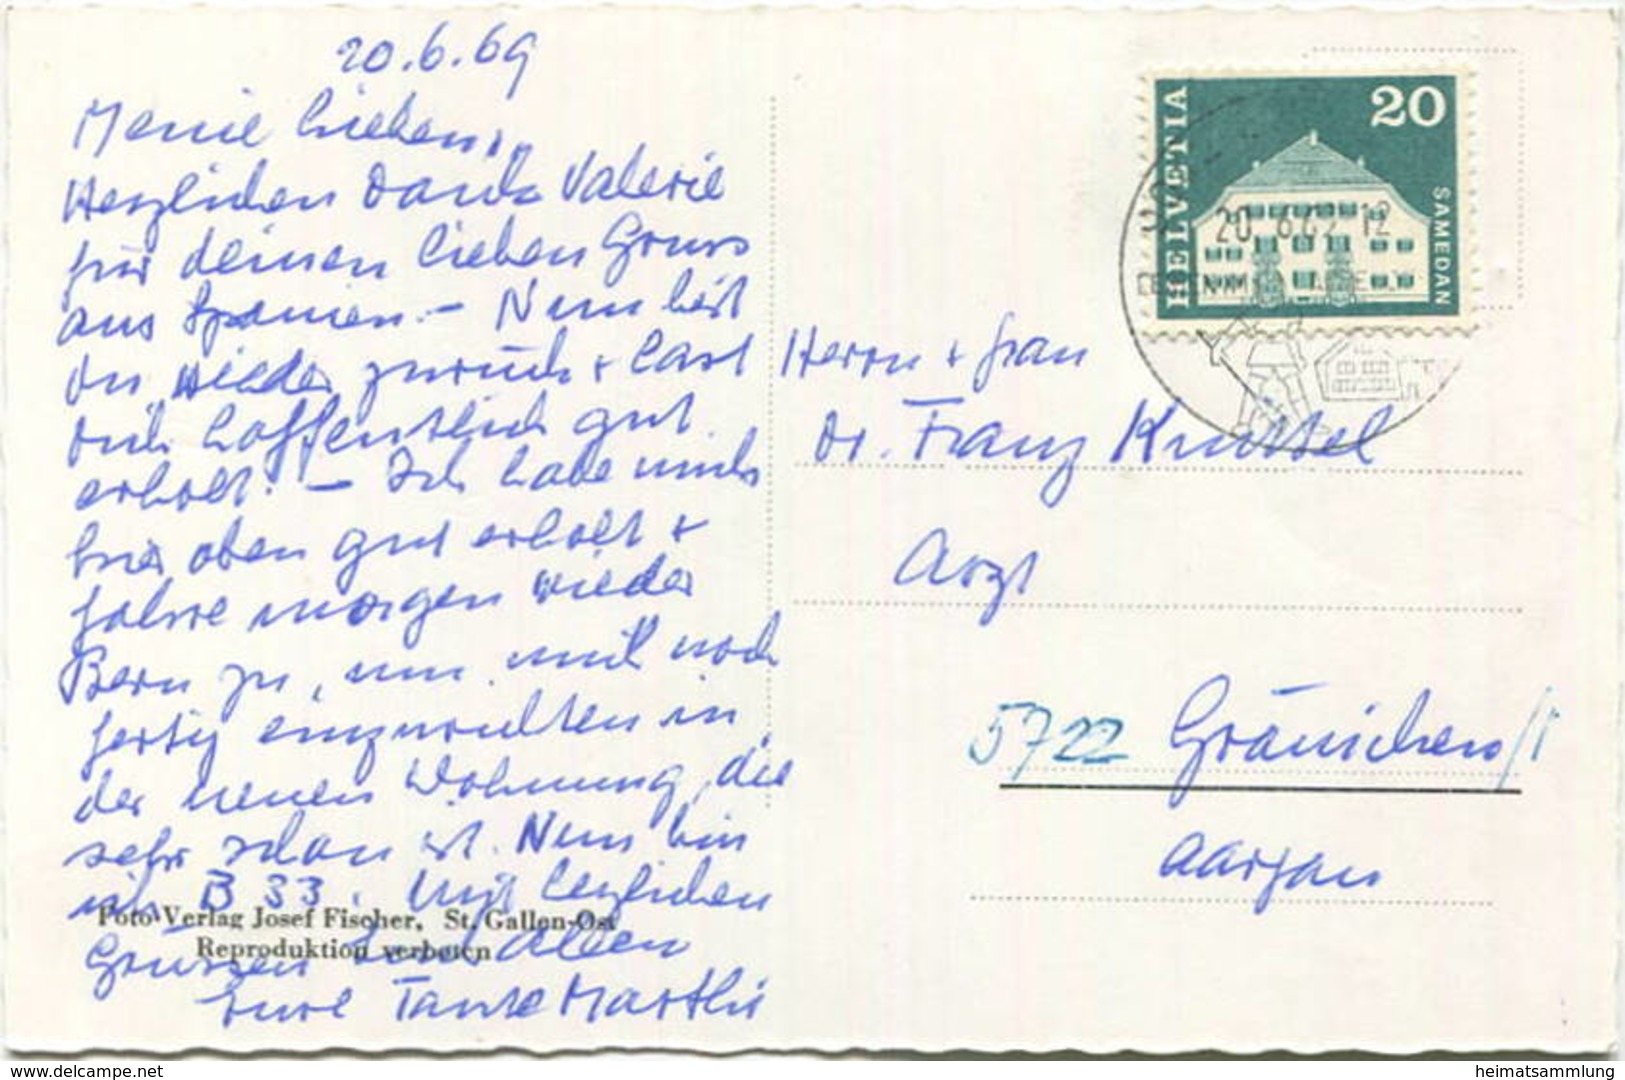 20.6.69
Meine Lieben,
Herzlichen Dank Valerie
für deinen lieben Gruss
aus Spanien. – Nun bist
du wieder zurück + hast
dich hoffentlich gut
erholt. – Ich habe mich
hier oben gut erholt +
fahre morgen wieder
Bern zu, um mich noch
fertig einzurichten in
der neuen Wohnung, die
sehr schön ist. Nun bin
ich B 33. Mit herzlichen
Grüssen Euch allen
Eure Tante Marthi
Foto-Verlag Josef Fischer, St. Gallen-Ost
Reproduktion verboten
HELVETIA
20
SAMEDAN
20. 6.69 12
Herrn + Frau
Dr. Franz Knüssel
Arzt
5722 Gränichen
Aargau
delcampe.net
heimatsammlung